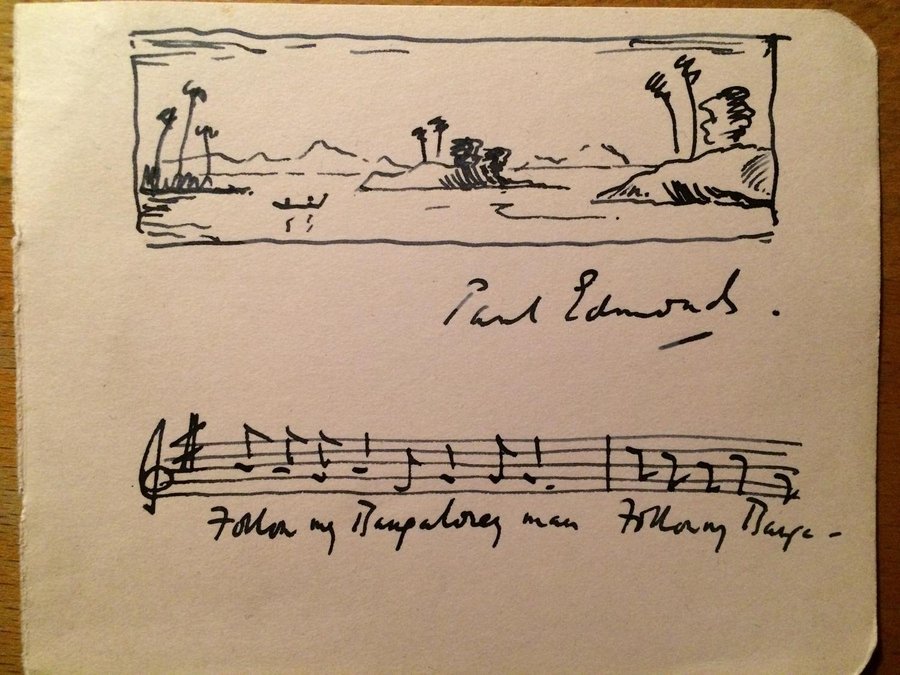 Paul Edmonds.
Follow my Bangalorey man Follow my Banga-